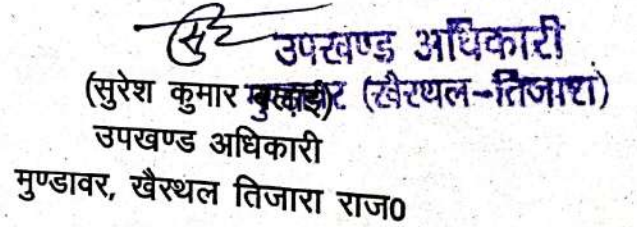 उपखण्ड अधिकारी
(सुरेश कुमार
(खैरथल-तिजारा)
उपखण्ड अधिकारी
मुण्डावर, खैरथल तिजारा राज0